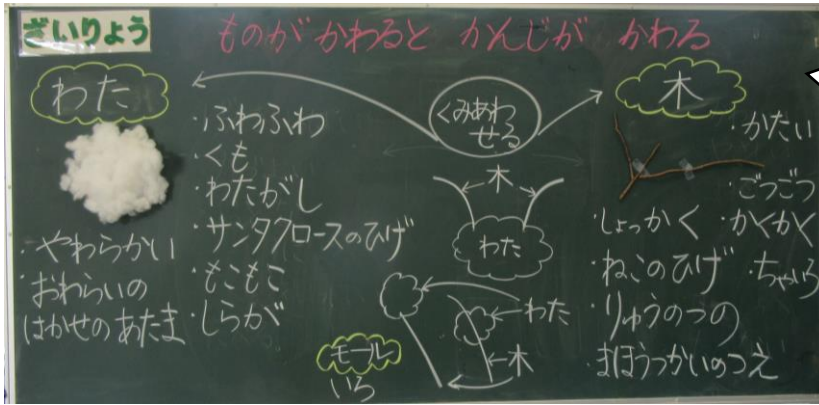 ざいりょう
ものが かわると かんじが かわる
わた
・ふわふわ
・くも
・わたがし
・サンタクロースのひげ
・もこもこ
・しらが
・やわらかい
・おわらいの
はかせのあたま
くみあわ
せる
木
わた
わた
木
モール
いろ
木
・かたい
・ごつごつ
・しょっかく
・かくかく
・ねこのひげ
・ちゃいろ
・りゅうのつの
・まほうつかいのつえ